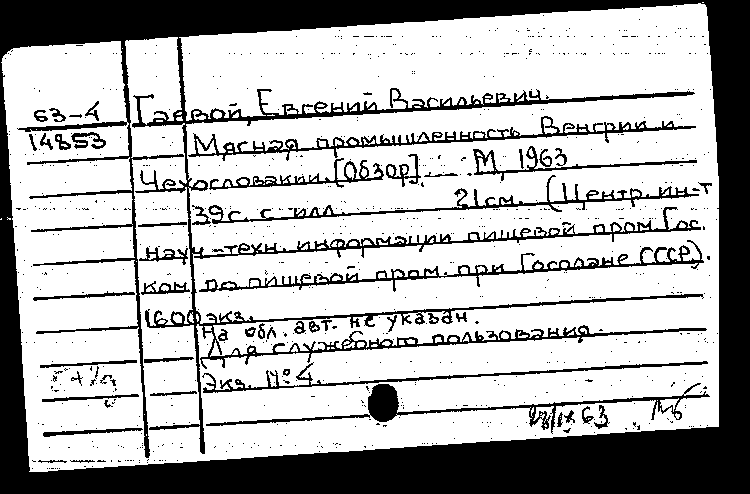 63-4
14853
Гаевой, Евгений Васильевич.
Мясная промышленность Венгрии и
Чехословакии. [Обзор]. М, 1963.
39с. с илл. 21см. (Центр. ин-т
науч-техн. информации пищевой пром. Гос.
ком. по пищевой пром. при Госплане СССР).
1600 экз.
На обл. авт. не указан.
Для служебного пользования.
Экз. № 4.
63